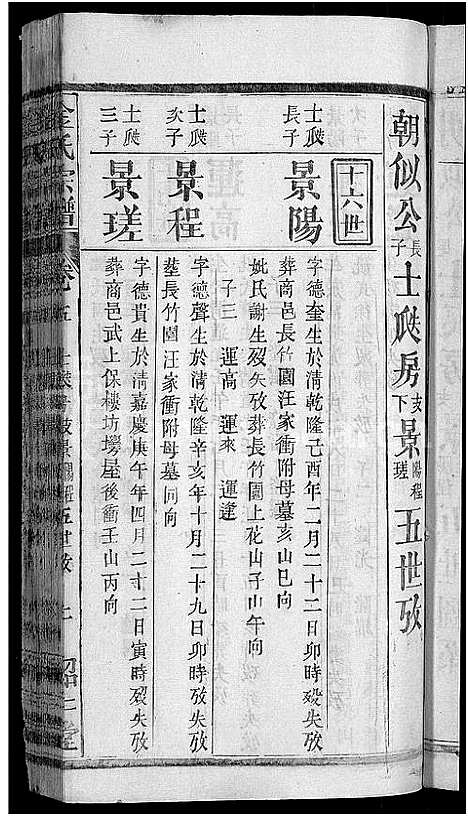 朝似公長子士㸚房支下景陽程瑳五世攷
十六世
士㸚長子
景陽
字德奎生於清乾隆己酉年二月二十二日卯時歿失攷
葬商邑長竹園汪家衝附母墓亥山巳向
妣氏謝生歿失攷葬長竹園上花山子山午向
子三 運高 運來 運逵
士㸚次子
景程
字德聲生於清乾隆辛亥年十月二十九日卯時歿失攷
塟長竹園汪家衝附母墓同向
士㸚三子
景瑳
字德貴生於清嘉慶庚午年四月二十二日寅時歿失攷
葬商邑武上保樓坊塝屋後衝壬山丙向
金氏宗譜
卷五
五世攷